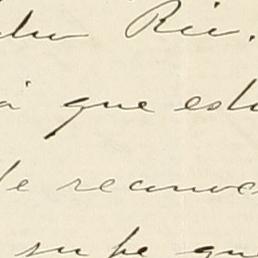 Ric.
á que est
de reconoc
supe que